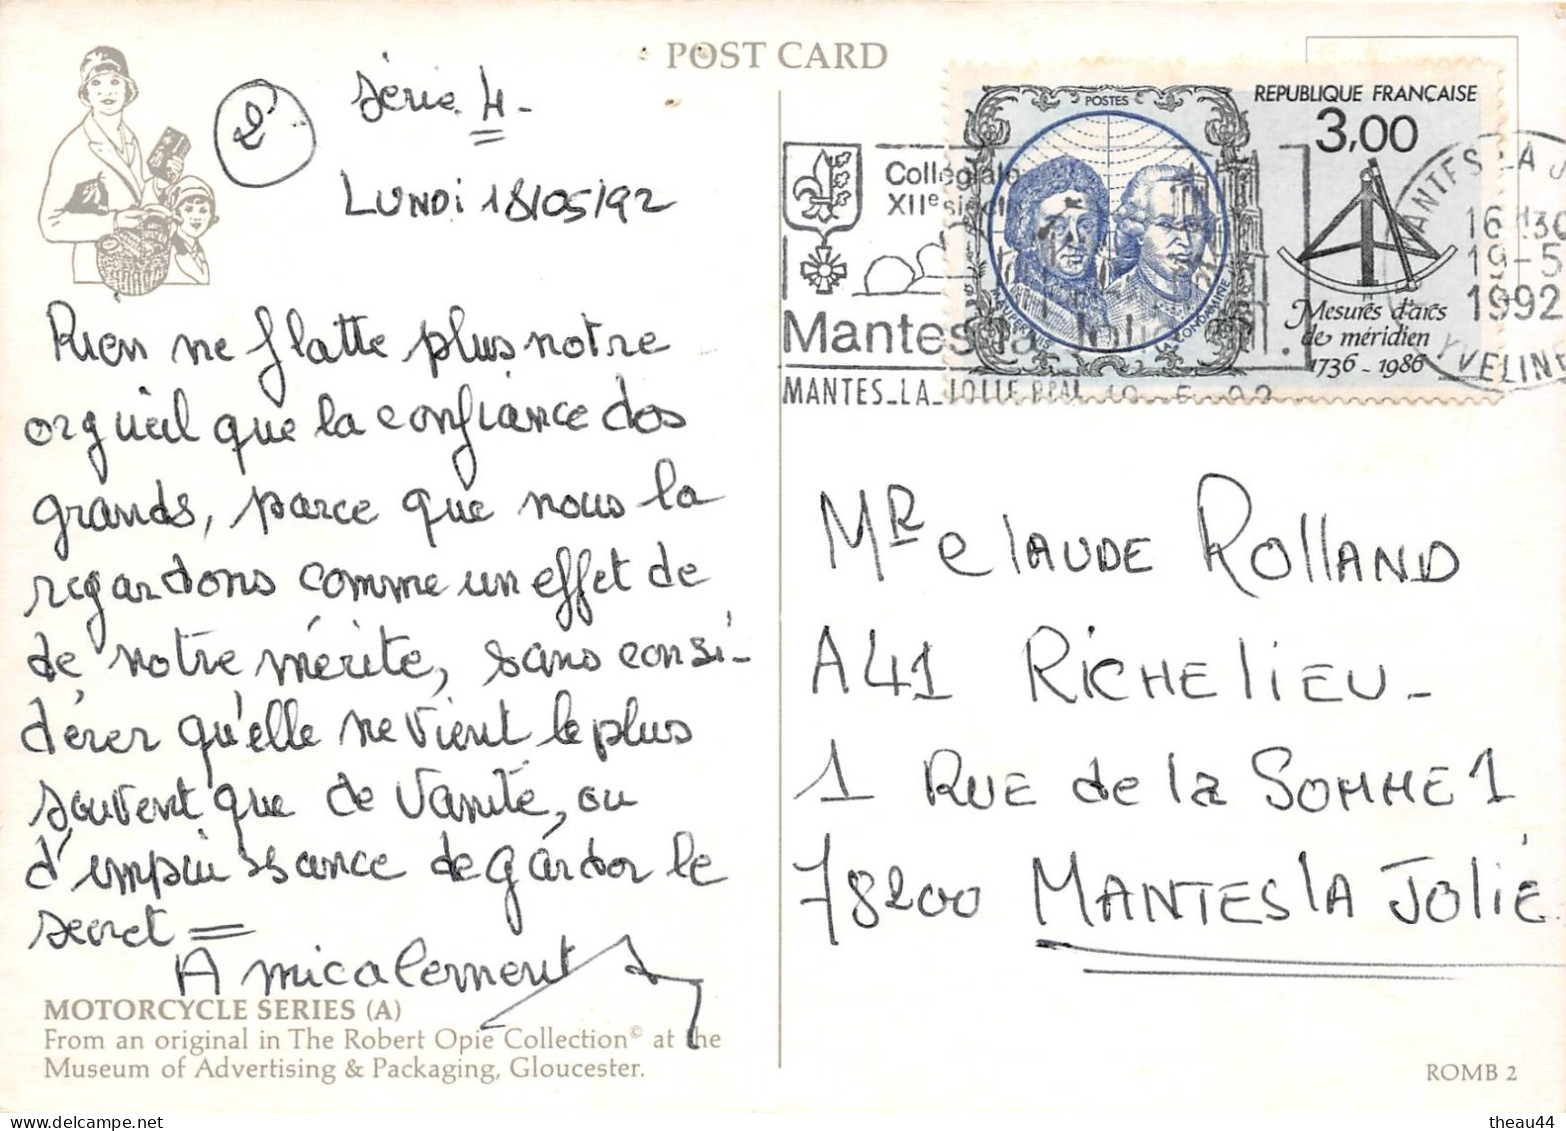 POST CARD
2
Série 4-
LUNDi 18/05/92
Rien ne flatte plus notre
orgueil que la confiance dos
grands, parce que nous la
regardons comme un effet de
de notre mérite, sans consi-
dérer qu'elle ne vient le plus
souvent que de vanité, ou
d'impuissance de garder le
secret =
Amicalement
MOTORCYCLE SERIES (A)
From an original in The Robert Opie Collection© at the
Museum of Advertising & Packaging, Gloucester.
REPUBLIQUE FRANÇAISE
POSTES
3,00
MAUPERTUIS
LA CONDAMINE
Mesures d'arcs
de méridien
1736 - 1986
Collégiale
XIIe siècle
Mantes la Jolie
MANTES-LA-JOLIE PPAL 19-5-92
MANTES-LA-J
16H30
19-5
1992
YVELINE
MR Claude Rolland
A41 Richelieu-
1 Rue de la Somme 1
78200 Mantes la Jolie
ROMB 2
theau44